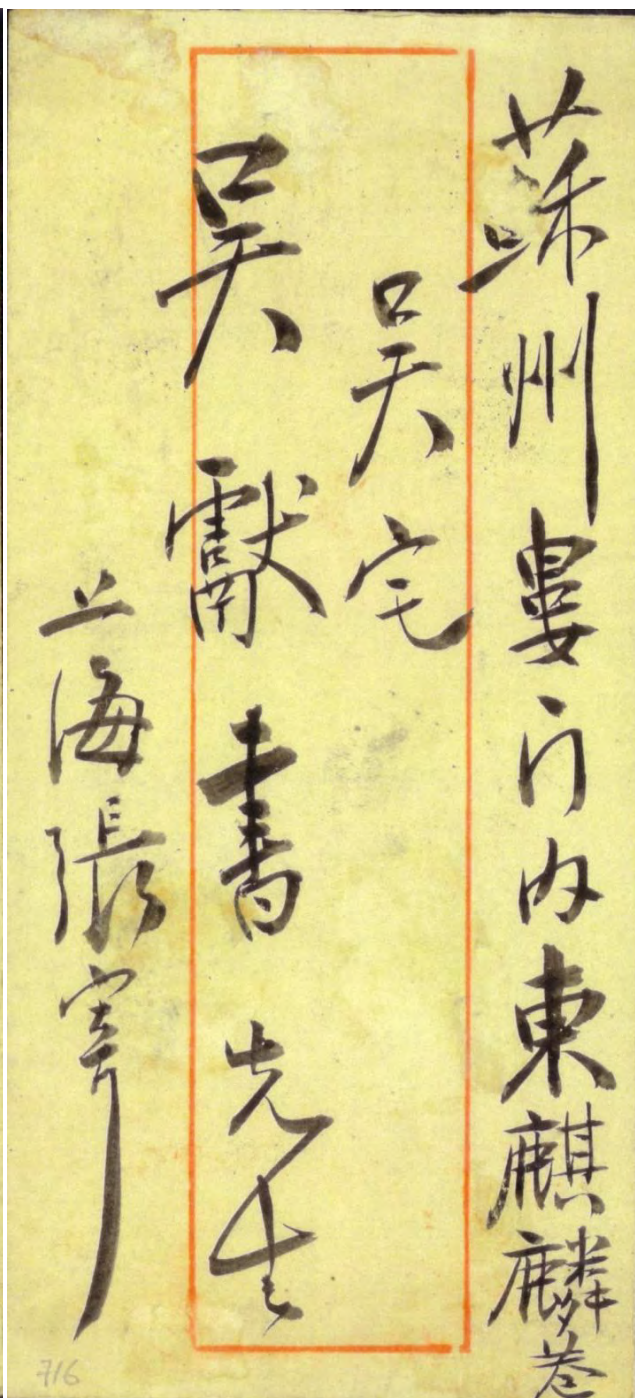 蘇州婁门内東麒麟巷
吴宅
吴獻書先生
上海張寄
716